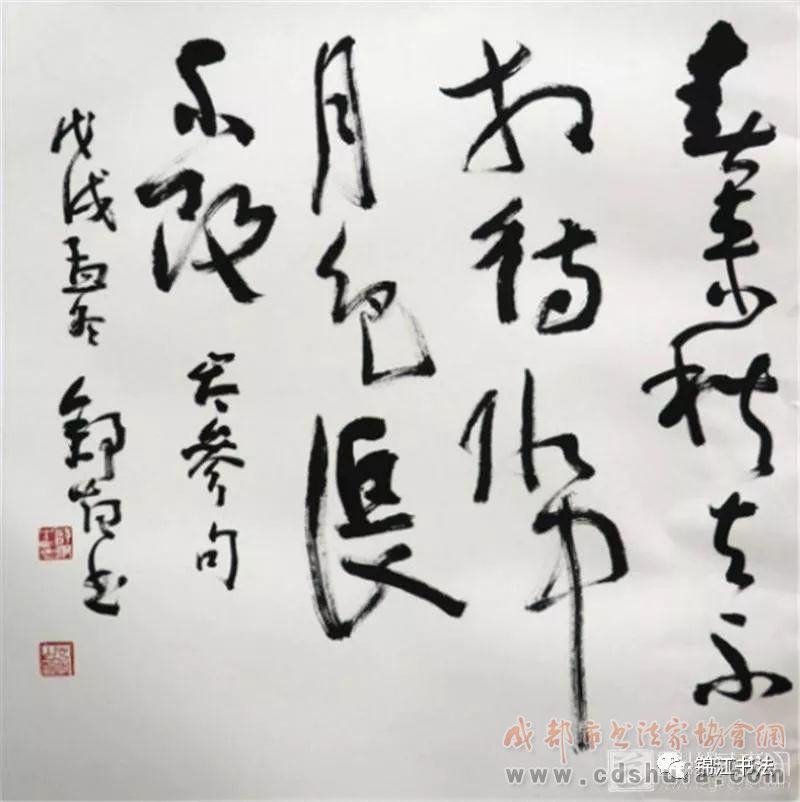 春来秋去不
相待水中
月色長
不改 岑參句
戊戌孟冬 書
成都市书法家協會網
www.cdshufa.com
锦江书法